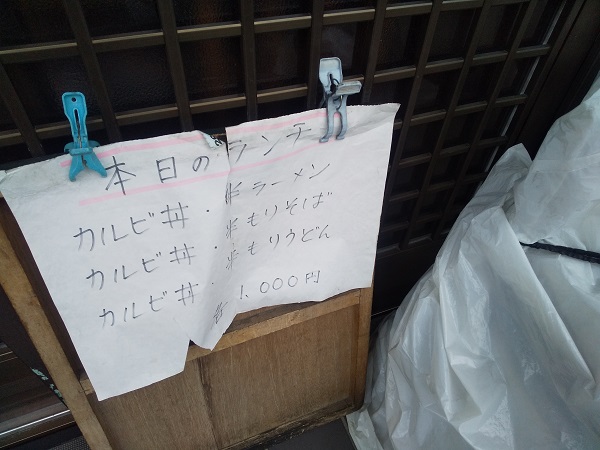 本日のランチ
カルビ丼・半ラーメン
カルビ丼・半もりそば
カルビ丼・半もりうどん
各1,000円